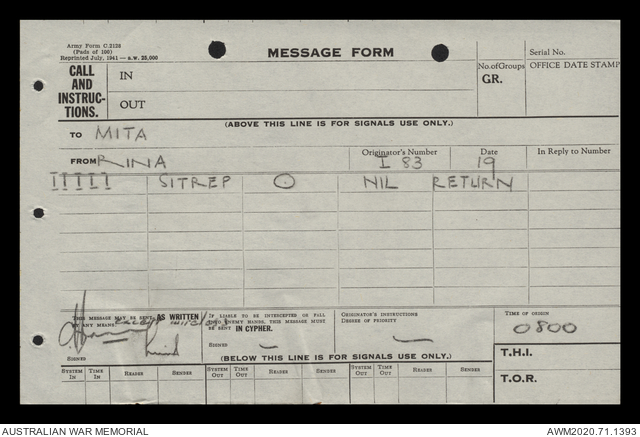 Army Form C.2128
(Pads of 100)
Reprinted July, 1941—s.w. 25,000
MESSAGE FORM
Serial No.
CALL AND INSTRUC-TIONS.
IN
OUT
No. of Groups
GR.
OFFICE DATE STAMP
(ABOVE THIS LINE IS FOR SIGNALS USE ONLY.)
TO MITA
FROM RINA
Originator's Number
I 83
Date
19
In Reply to Number
IIIII SITREP ⊙ NIL RETURN
THIS MESSAGE MAY BE SENT AS WRITTEN BY ANY MEANS except wireless
SIGNED
IF LIABLE TO BE INTERCEPTED OR FALL INTO ENEMY HANDS, THIS MESSAGE MUST BE SENT IN CYPHER.
SIGNED —
ORIGINATOR'S INSTRUCTIONS
DEGREE OF PRIORITY
—
TIME OF ORIGIN
0800
(BELOW THIS LINE IS FOR SIGNALS USE ONLY.)
T.H.I.
T.O.R.
SYSTEM IN TIME IN READER SENDER SYSTEM OUT TIME OUT READER SENDER SYSTEM OUT TIME OUT READER SENDER
AUSTRALIAN WAR MEMORIAL
AWM2020.71.1393